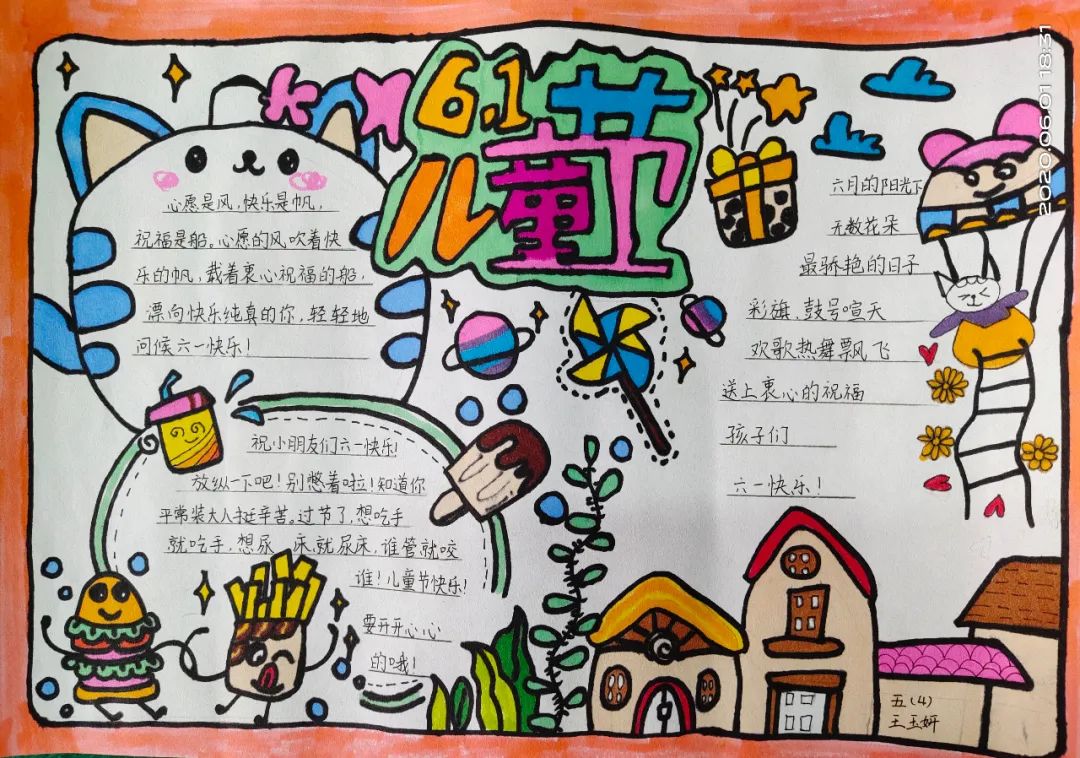 6.1
儿童节
心愿是风，快乐是帆，
祝福是船。心愿的风吹着快
乐的帆，载着衷心祝福的船，
漂向快乐纯真的你，轻轻地
问候六一快乐！
祝小朋友们六一快乐！
放纵一下吧！别憋着啦！知道你
平常装大人挺辛苦。过节了，想吃手
就吃手，想尿 床，就尿床，谁管就咬
谁！儿童节快乐！
要开开心心
的哦！
六月的阳光下
无数花朵
最骄艳的日子
彩旗、鼓号喧天
欢歌热舞飘飞
送上衷心的祝福
孩子们
六一快乐！
五（4）
王玉妍
2020.06.01 18:31